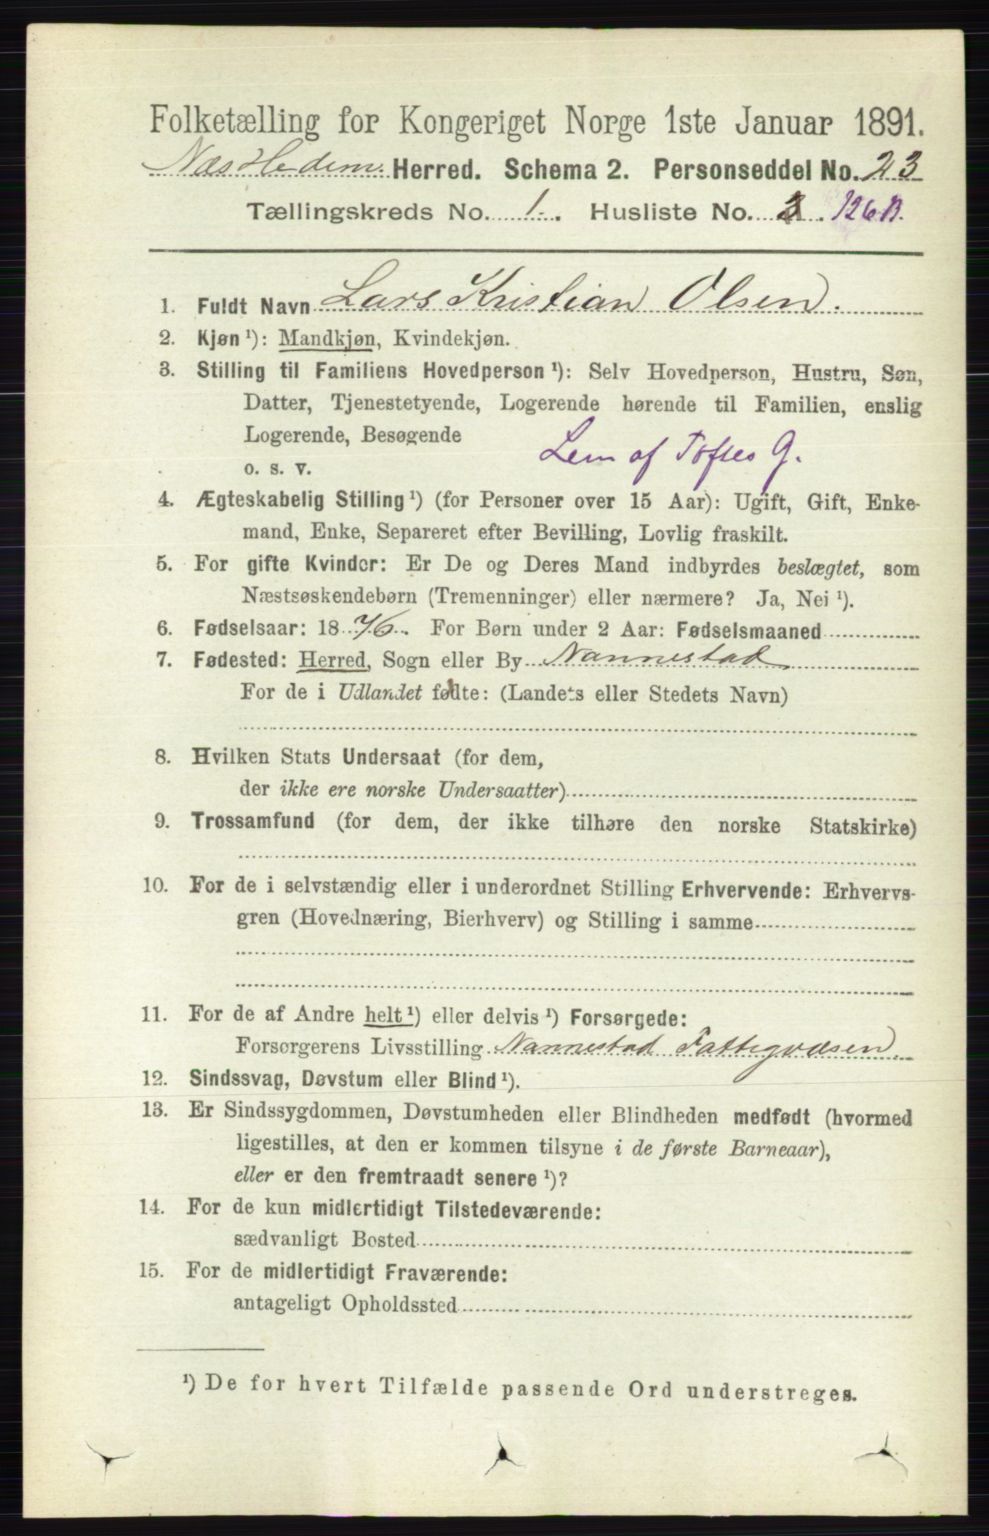 Folketælling for Kongeriget Norge 1ste Januar 1891.
Næs Hedem. Herred. Schema 2. Personseddel No. 23
Tællingskreds No. 1. Husliste No. 3. 126 B.
1. Fuldt Navn Lars Kristian Olsen.
2. Kjøn ¹): Mandkjøn, Kvindekjøn.
3. Stilling til Familiens Hovedperson ¹): Selv Hovedperson, Hustru, Søn,
Datter, Tjenestetyende, Logerende hørende til Familien, enslig
Logerende, Besøgende
o. s. v. Lem af Toftes G.
4. Ægteskabelig Stilling ¹) (for Personer over 15 Aar): Ugift, Gift, Enke-
mand, Enke, Separeret efter Bevilling, Lovlig fraskilt.
5. For gifte Kvinder: Er De og Deres Mand indbyrdes beslægtet, som
Næstsøskendebørn (Tremenninger) eller nærmere? Ja, Nei ¹).
6. Fødselsaar: 1876. For Børn under 2 Aar: Fødselsmaaned
7. Fødested: Herred, Sogn eller By Nannestad
For de i Udlandet fødte: (Landets eller Stedets Navn)
8. Hvilken Stats Undersaat (for dem,
der ikke ere norske Undersaatter)
9. Trossamfund (for dem, der ikke tilhøre den norske Statskirke)
10. For de i selvstændig eller i underordnet Stilling Erhvervende: Erhvervs-
gren (Hovednæring, Bierhverv) og Stilling i samme
11. For de af Andre helt ¹) eller delvis ¹) Forsørgede:
Forsørgerens Livsstilling Nannestad Fattigvæsen.
12. Sindssvag, Døvstum eller Blind ¹).
13. Er Sindssygdommen, Døvstumheden eller Blindheden medfødt (hvormed
ligestilles, at den er kommen tilsyne i de første Barneaar),
eller er den fremtraadt senere ¹)?
14. For de kun midlertidigt Tilstedeværende:
sædvanligt Bosted
15. For de midlertidigt Fraværende:
antageligt Opholdssted
¹) De for hvert Tilfælde passende Ord understreges.